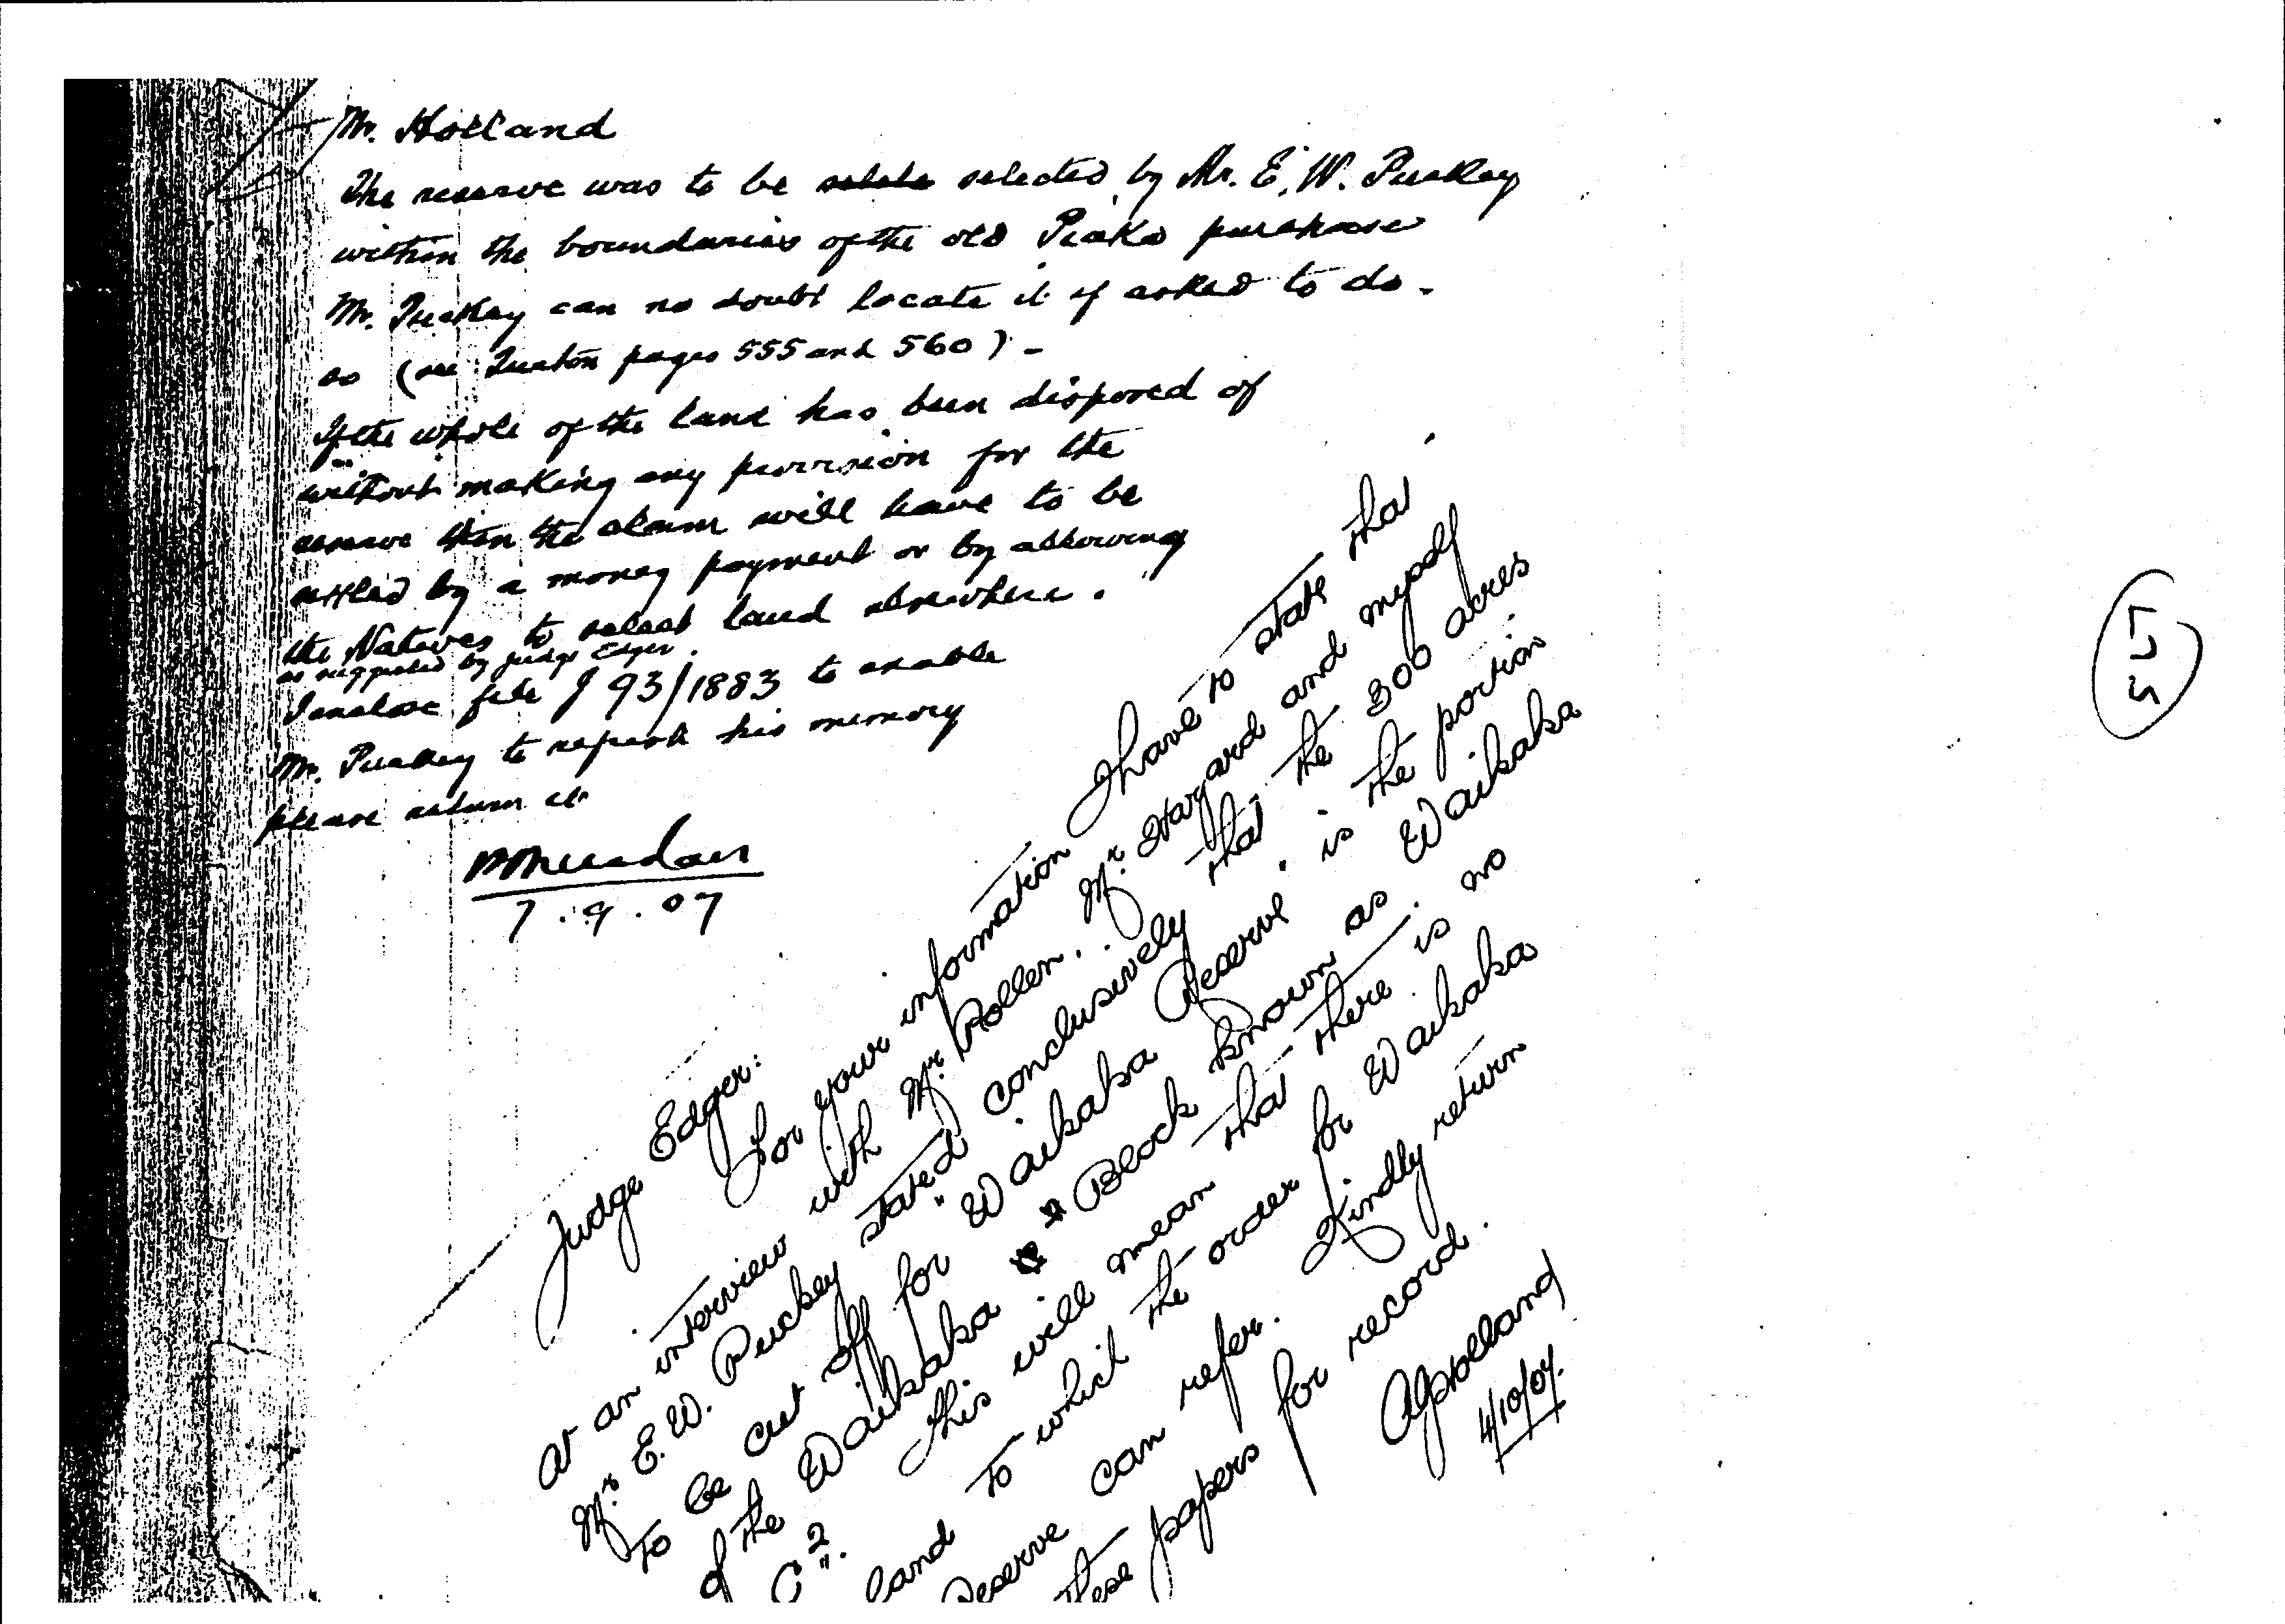 Mr. Holland
The reserve was to be selected by Mr. E. W. Puckey
within the boundaries of the old Piako purchase
Mr. Puckey can no doubt locate it if asked to do -
so (see Turton pages 555 and 560) -
If the whole of the land has been disposed of
without making any provision for the
reserve then the claim will have to be
settled by a money payment or by allowing
the Natives to select land elsewhere.
as suggested by Judge Edger.
I enclose file J 93/1883 to enable
Mr. Puckey to refresh his memory
please return it
7.9.07
Judge Edger:
For your information I have to state that
at an interview with Mr Pollen, Mr Hazard and myself
Mr E. W. Puckey stated conclusively that the 300 acres
to be cut off for "Waikaka Reserve" is the portion
of the Waikaka Block known as Waikaka
C 2".
This will mean that there is no
land to which the order for Waikaka
Reserve can refer. Kindly return
these papers for record.
Holland
4/10/07.